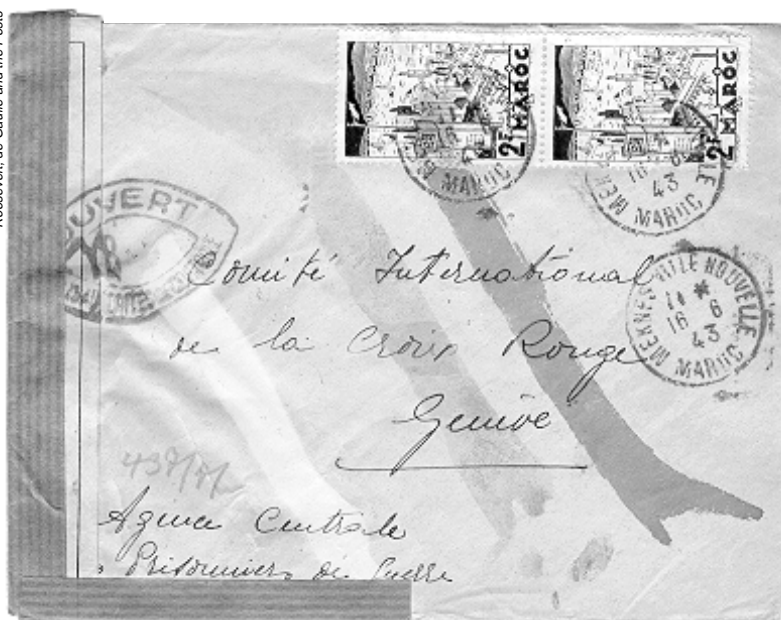 2F MAROC
2F MAROC
MAROC
16 6
43
MEK
LLE
MAROC
MEKNES VILLE NOUVELLE
11 *
16 6
43
MAROC
OUVERT
Comité International
de la Croix Rouge
Genève
Agence Centrale
Prisonniers de Guerre